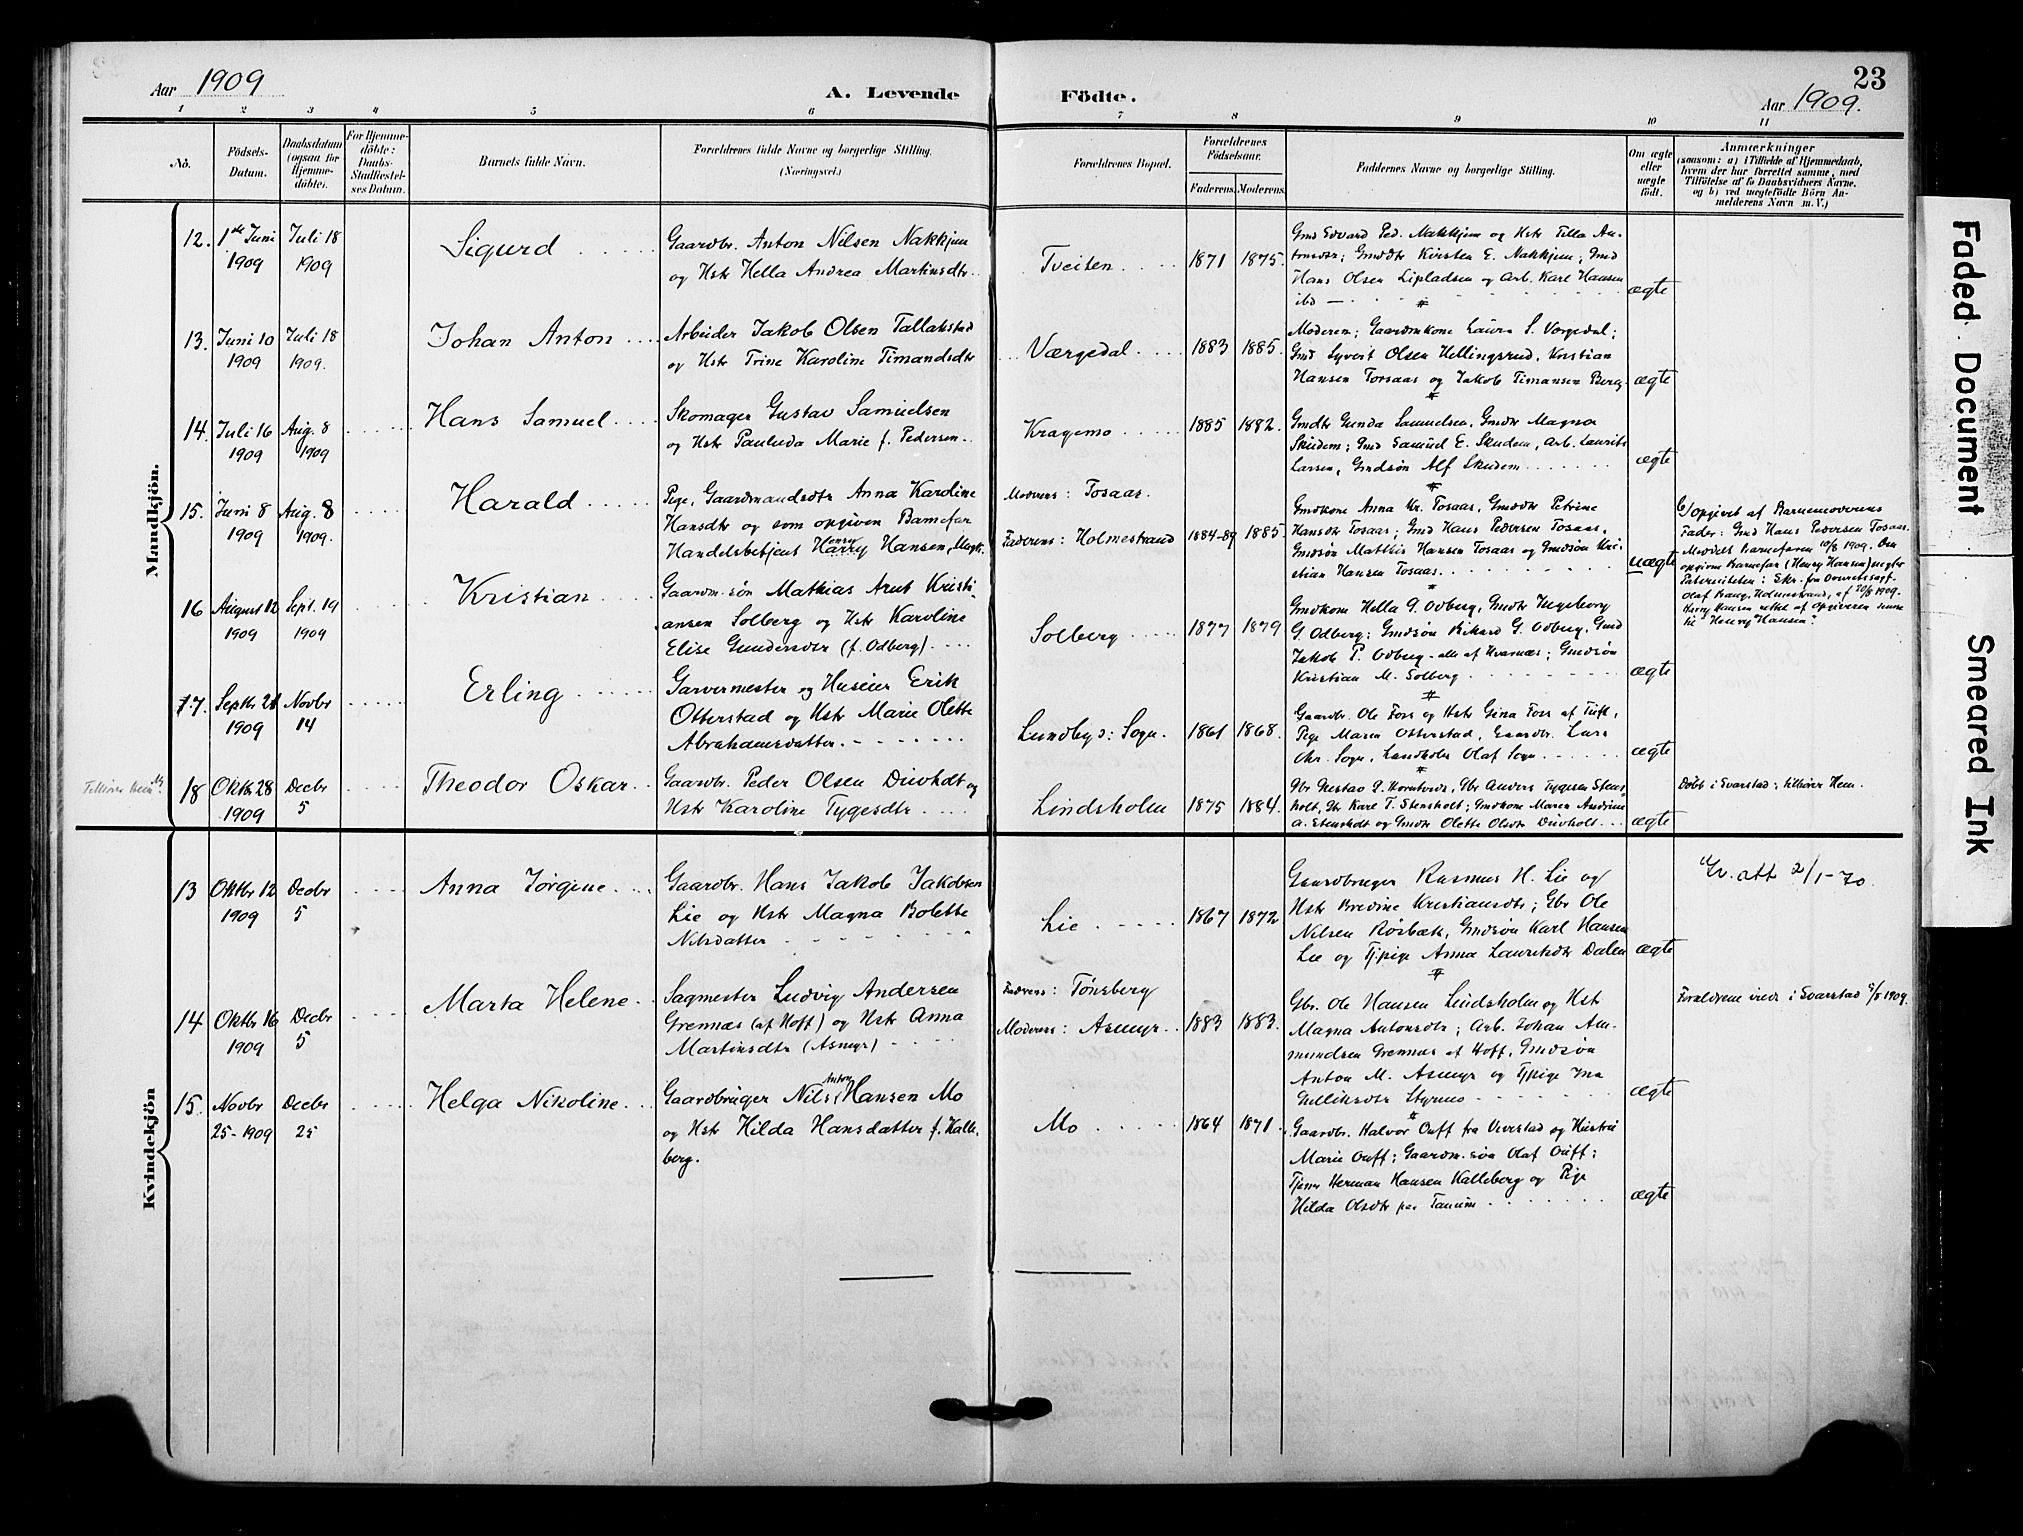 23
Aar 1909
A. Levende Födte.
Aar 1909.
1 2 3 4 5 6 7 8 9 10 11
No.
Födsels-Datum.
Daabsdatum (ogsaa for Hjemmedöbte).
For Hjemmedöbte: Daabs-Stadfæstelses Datum.
Barnets fulde Navn.
Forældrenes fulde Navne og borgerlige Stilling.
(Næringsvei.)
Forældrenes Bopæl.
Forældrenes Födselsaar.
Faderens. Moderens.
Faddernes Navne og borgerlige Stilling.
Om ægte eller uægte födt.
Anmærkninger
(saasom: a) i Tilfælde af Hjemmedaab,
hvem der har forrettet samme, med
Tilföielse af to Daabsvidners Navne,
og b) ved uægtefödte Börn An-
melderens Navn m. V.)
Mandkjön.
12. 1ste Juni 1909
Juli 18 1909
Sigurd
Gaardbr. Anton Nilsen Nakkjem
og Hstr Hella Andrea Martinsdtr.
Tveiten
1871 1875.
Gmd Edvard Ped. Nakkjem og Hstr Tilla An-
tonsdtr; Gmdtr Kirsten E. Nakkjem; Gmd
Hans Olsen Lipladsen og Arb. Karl Hansen
ibd
ægte
13. Juni 10 1909
Juli 18 1909.
Johan Anton
Arbeider Jakob Olsen Tallakstad
og Hstr Trine Karoline Timandsdtr
Værgedal
1883 1885.
Moderen; Gaardmkone Laura S. Værgedal;
Gmd Syvert Olsen Hellingsrud, Kristian
Hansen Torsaas og Jakob Timansen Berg
ægte
14. Juli 16 1909
Aug. 8 1909
Hans Samuel
Skomager Gustav Samuelsen
og Hstr Pauluda Marie f. Pedersen
Kragemo
1885 1882.
Gmdtr Gunda Samuelsen, Gmdtr Magna
Skudem; Gmd Samuel E. Skudem, Arb. Laurits
Larsen, Gmdsön Alf Skudem
ægte
15. Juni 8 1909
Aug. 8 1909.
Harald
Pige, Gaardmandsdtr Anna Karoline
Hansdtr og som opgiven Barnefar
Handelsbetjent Harry Hansen,
Henry
Moderens: Tosaas.
Faderens: Holmestrand
1884-89 1885.
Gmdkone Anna Kr. Tosaas, Gmddtr Petrine
Hansdtr Tosaas; Gmd Hans Pedersen Tosaas,
Gmdsøn Mathis Hansen Tosaas og Gmdsön Kri-
stian Hansen Tosaas
uægte
Opgivet af Barnemoderens
Fader: Gmd Hans Pedersen Tosaas.
Meddelt Barnefaren 10/8 1909. Den
opgivne Barnefar (Henry Hansen) negter
Paterniteten: Skr. fra Overretssagf.
Olaf Bang, Holmestrand, af 20/8 1909.
Harry Hansen rettet af Opgiveren senere
til "Henry Hansen".
16 August 12 1909
Sept. 19 1909
Kristian
Gaardm.søn Mathias Arnt Kristi-
ansen Solberg og Hstr Karoline
Elise Gundersdtr (f. Odberg)
Solberg
1877 1879
Gmdkone Hella G. Odberg, Gmdtr Ingeborg
G. Odberg; Gmdsøn Rikard G. Odberg, Gmd
Jakob P. Odberg - alle af Hvarnæs; Gmdsön
Kristian M. Solberg
ægte
17. Septbr 21 1909
Novbr 14
Erling
Garvermester og Huseier Erik
Otterstad og Hstr Marie Olette
Abrahamsdatter.
Lundby s: Sogn.
1861 1868.
Gaardbr. Ole Foss og Hstr Gina Foss af Tuft,
Pige Maren Otterstad, Gaardbr. Lars
Chr. Sogn, Landholm Olaf Sogn
ægte
Tilhører Hem
18 Oktbr 28 1909
Decbr 5
Theodor Oskar
Gaardbr. Peder Olsen Duvholt og
Hstr Karoline Tygesdtr
Lindsholm
1875 1884.
Gbr Anders Tygesen Stens-
holt, Gbr Karl T. Stensholt; Gmdkone Maren Andrine
A. Stensholt og Gmdtr Olette Olsdtr Duvholt
ægte
Døbt i Svarstad; tilhører Hem.
Kvindekjön
13 Oktbr 12 1909
Decbr 5
Anna Jørgine
Gaardbr. Hans Jakob Jakobsen
Lie og Hstr Magna Bolette
Nilsdatter
Lie
1867 1872
Gaardbruger Rasmus H. Lie og
Hstr Bredine Kristiansdtr; Gbr Ole
Nilsen Røsbæk, Gmdsøn Karl Hansen
Lie og Tjpige Anna Lauritsdtr Dalen
ægte
Gv. att 2/1-70.
14 Oktbr 16 1909
Decbr 5
Marta Helene
Sagmester Ludvig Andersen
Grennæs (af Hoff) og Hstr Anna
Martinsdtr (Asmyr)
Faderens: Tönsberg
Moderens: Asmyr.
1883 1883.
Gbr. Ole Hansen Lindsholm og Hstr
Magna Antonsdtr; Arb. Johan Am-
mundsen Grennæs af Hoff, Gmdsøn
Anton M. Asmyr og Tjpige Ina
ægte
Forældrene viede i Svarstad 5/8 1909.
15. Novbr 25-1909
Decbr 25
Helga Nikoline
Gaardbruger Nils Anton Hansen Mo
og Hstr Hilda Hansdatter f. Halle-
berg.
Mo
1864 1871.
Gaardbr. Halvor Ouff fra Vivestad og Hustru
Marie Ouff; Gaardm.søn Olaf Ouff;
Tjener Herman Hansen Kalleberg og Pige
Hilda Olsdtr paa Tanum
ægte
Faded Document
Smeared Ink